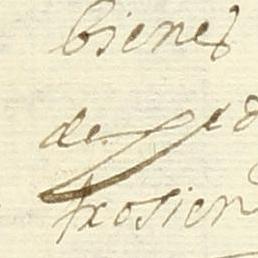 bienes
de
trosien